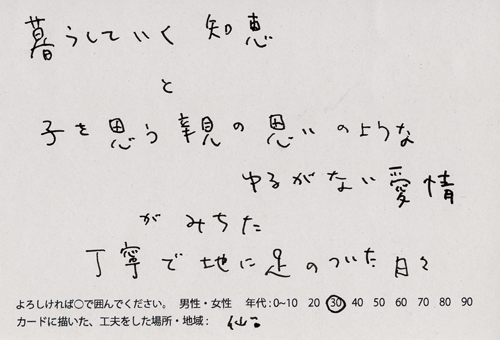 暮うしていく 知恵
と
子を思う親の思いのような
ゆるがない愛情
がみちた
丁寧で地に足のついた日々
よろしければ○で囲んでください。 男性・女性 年代:0~10 20 30 40 50 60 70 80 90
カードに描いた、工夫をした場所・地域: 仙台